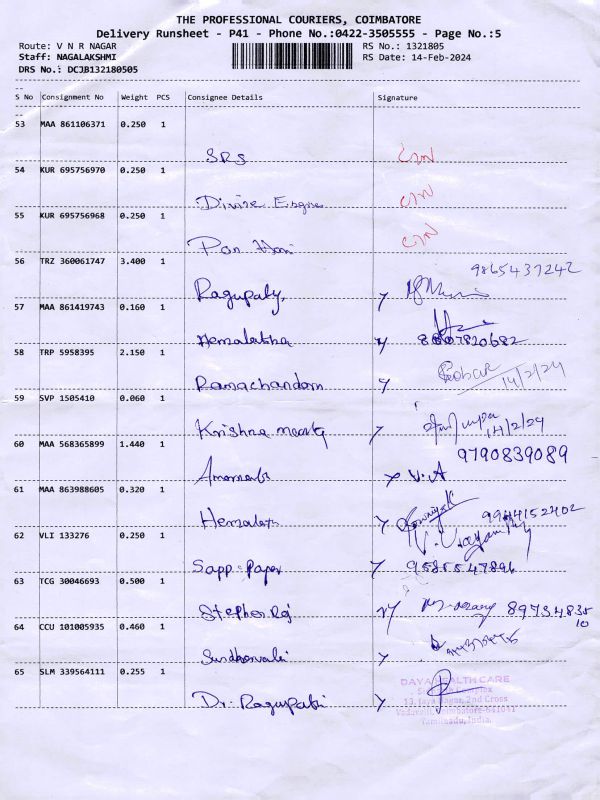 THE PROFESSIONAL COURIERS, COIMBATORE
Delivery Runsheet - P41 - Phone No.:0422-3505555 - Page No.:5
Route: V N R NAGAR RS No.: 1321805
Staff: NAGALAKSHMI RS Date: 14-Feb-2024
DRS No.: DCJB132180505
S No Consignment No Weight PCS Consignee Details Signature
53 MAA 861106371 0.250 1
SRS
54 KUR 695756970 0.250 1
Divine
55 KUR 695756968 0.250 1
Pon
56 TRZ 360061747 3.400 1
9865437242
Ragupaty
57 MAA 861419743 0.160 1
Hemalatha 8807820682
58 TRP 5958395 2.150 1
Ramachandom 14/2/24
59 SVP 1505410 0.060 1
Krishna 14/2/24
60 MAA 568365899 1.440 1
9790839089
V.A
61 MAA 863988605 0.320 1
9944152402
Hemalath
62 VLI 133276 0.250 1
Sapp Paper 9585547896
63 TCG 30046693 0.500 1
Stephen Raj 89734835
10
64 CCU 101005935 0.460 1
65 SLM 339564111 0.255 1
DAYA HEALTH CARE
Complex
13, Jaya Nagar, 2nd Cross
Coimbatore-641041
Tamilnadu, India.
Dr. Ragupati